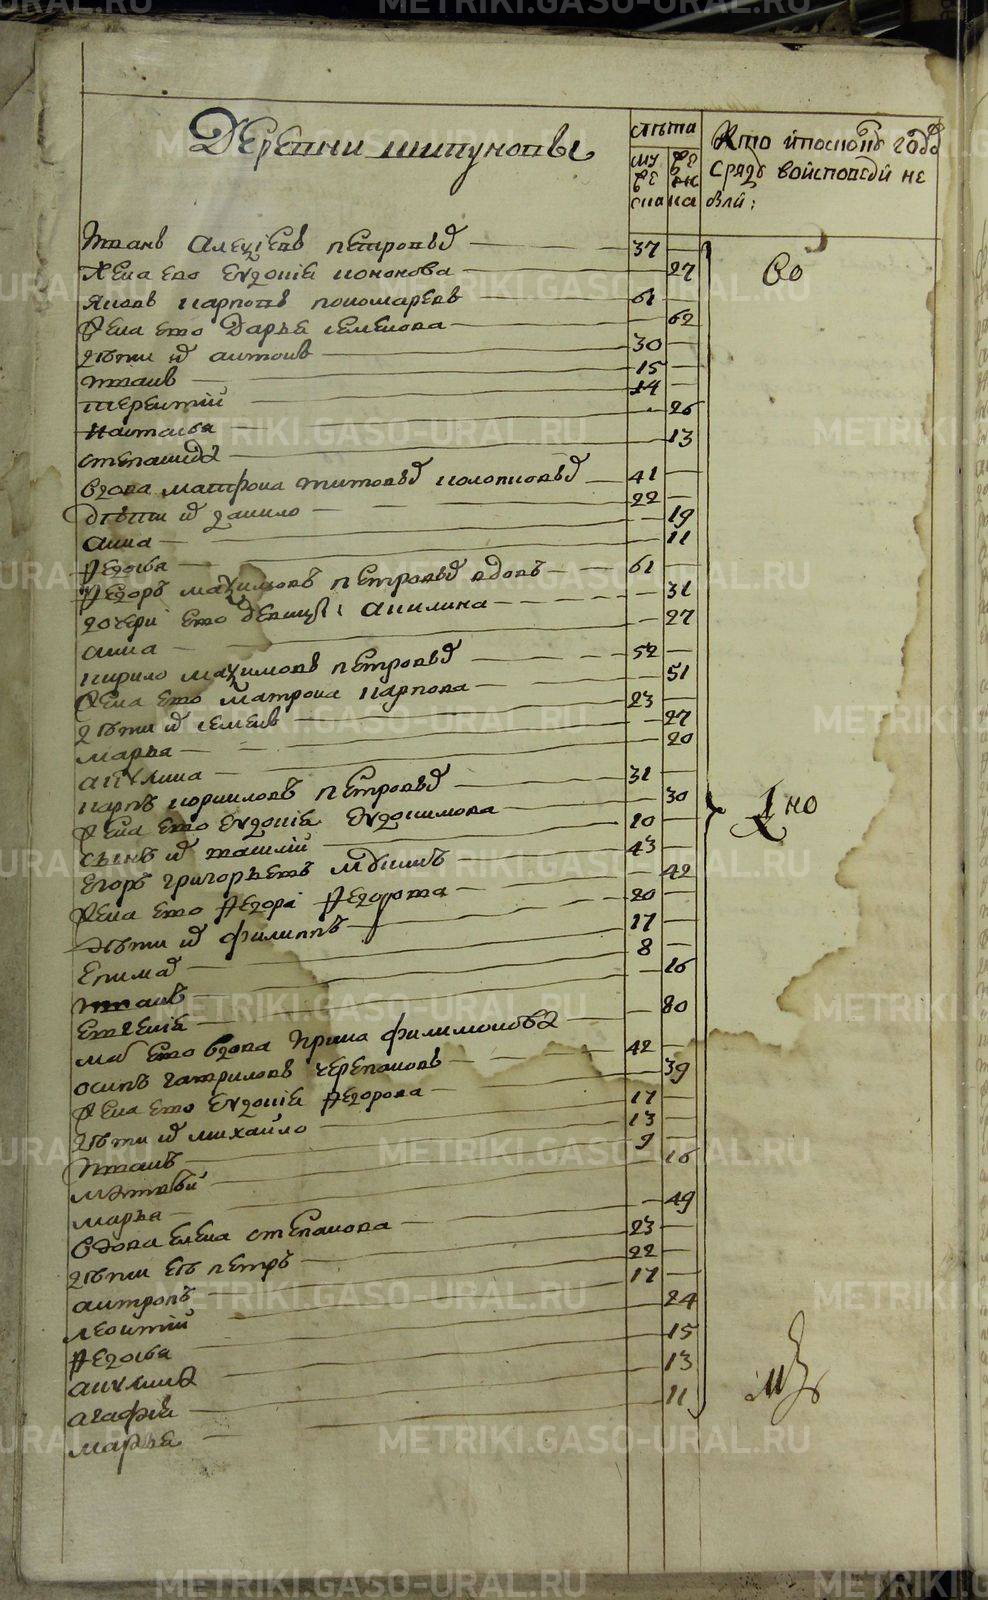 METRIKI.GASO-URAL.RU
Деревни шипуновы
лѣта
му
же
ска
же
нс
ка
Кто и по скольку годъ
сряду во исповеди не
был:
иванъ Алеѯіевъ петровыхъ 37
Жена его Евдокіѧ кононова 27
Яковъ карповъ пономаревъ 61
Жена его Дарья семенова 62
дѣти их антонъ 30
иванъ 15
терентий 14
настасья 26
степанида 13
вдова матрона титовых 41
дѣти их данило 22
анна 19
Федосья 11
Федоръ маѯимовъ петровых вдовъ 61
дочери его девицы акилина 31
анна 27
кирило маѯимовъ петровых 52
Жена его Матрона карпова 51
дѣти их семенъ 23
марья 27
акулина 20
карпъ корниловъ петровых 31
Жена его Евдокіѧ Евдокимова 30
сынъ их василий 10
Егоръ григорьевъ 43
Жена его Федора Федорова 42
дѣти их филиппъ 20
Екимъ 17
иванъ 8
Евгеніѧ 16
мать его вдова ирина филимонова 80
осипъ гавриловъ черепановъ 42
Жена его Евдокіѧ Федорова 39
дѣти их михайло 17
иванъ 13
матвѣй 9
марья 16
вдова елена степанова 49
дѣти еѧ петръ 23
антропъ 22
леонтий 17
Федосья 24
акулина 15
агафья 13
марья 11